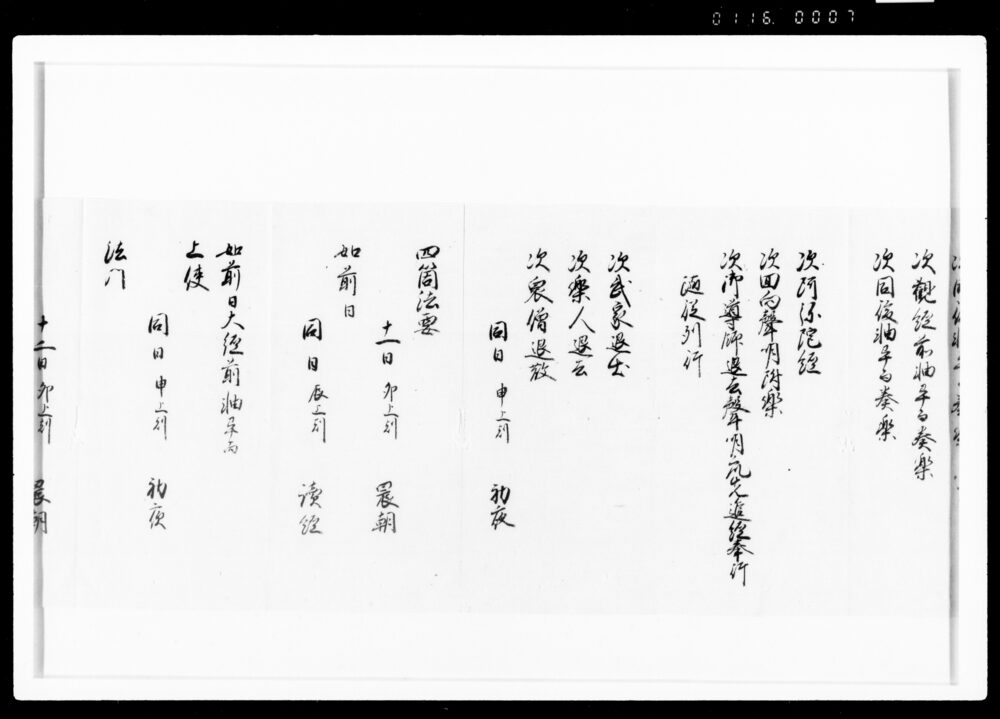 0116. 0007
次觀経前油単向奏楽
次同後油単向奏楽
次阿弥陀経
次回向聲明附楽
次御導師退去聲明衆先進経奉行
扈従列行
次武家退出
次楽人退去
次衆僧退散
同日 申上刻 初夜
四箇法要
十一日 卯上刻 晨朝
如前日
同日 辰上刻 讀経
如前日大経前油単向
上使
同日 申上刻 初夜
法門
十二日 卯上刻 晨朝